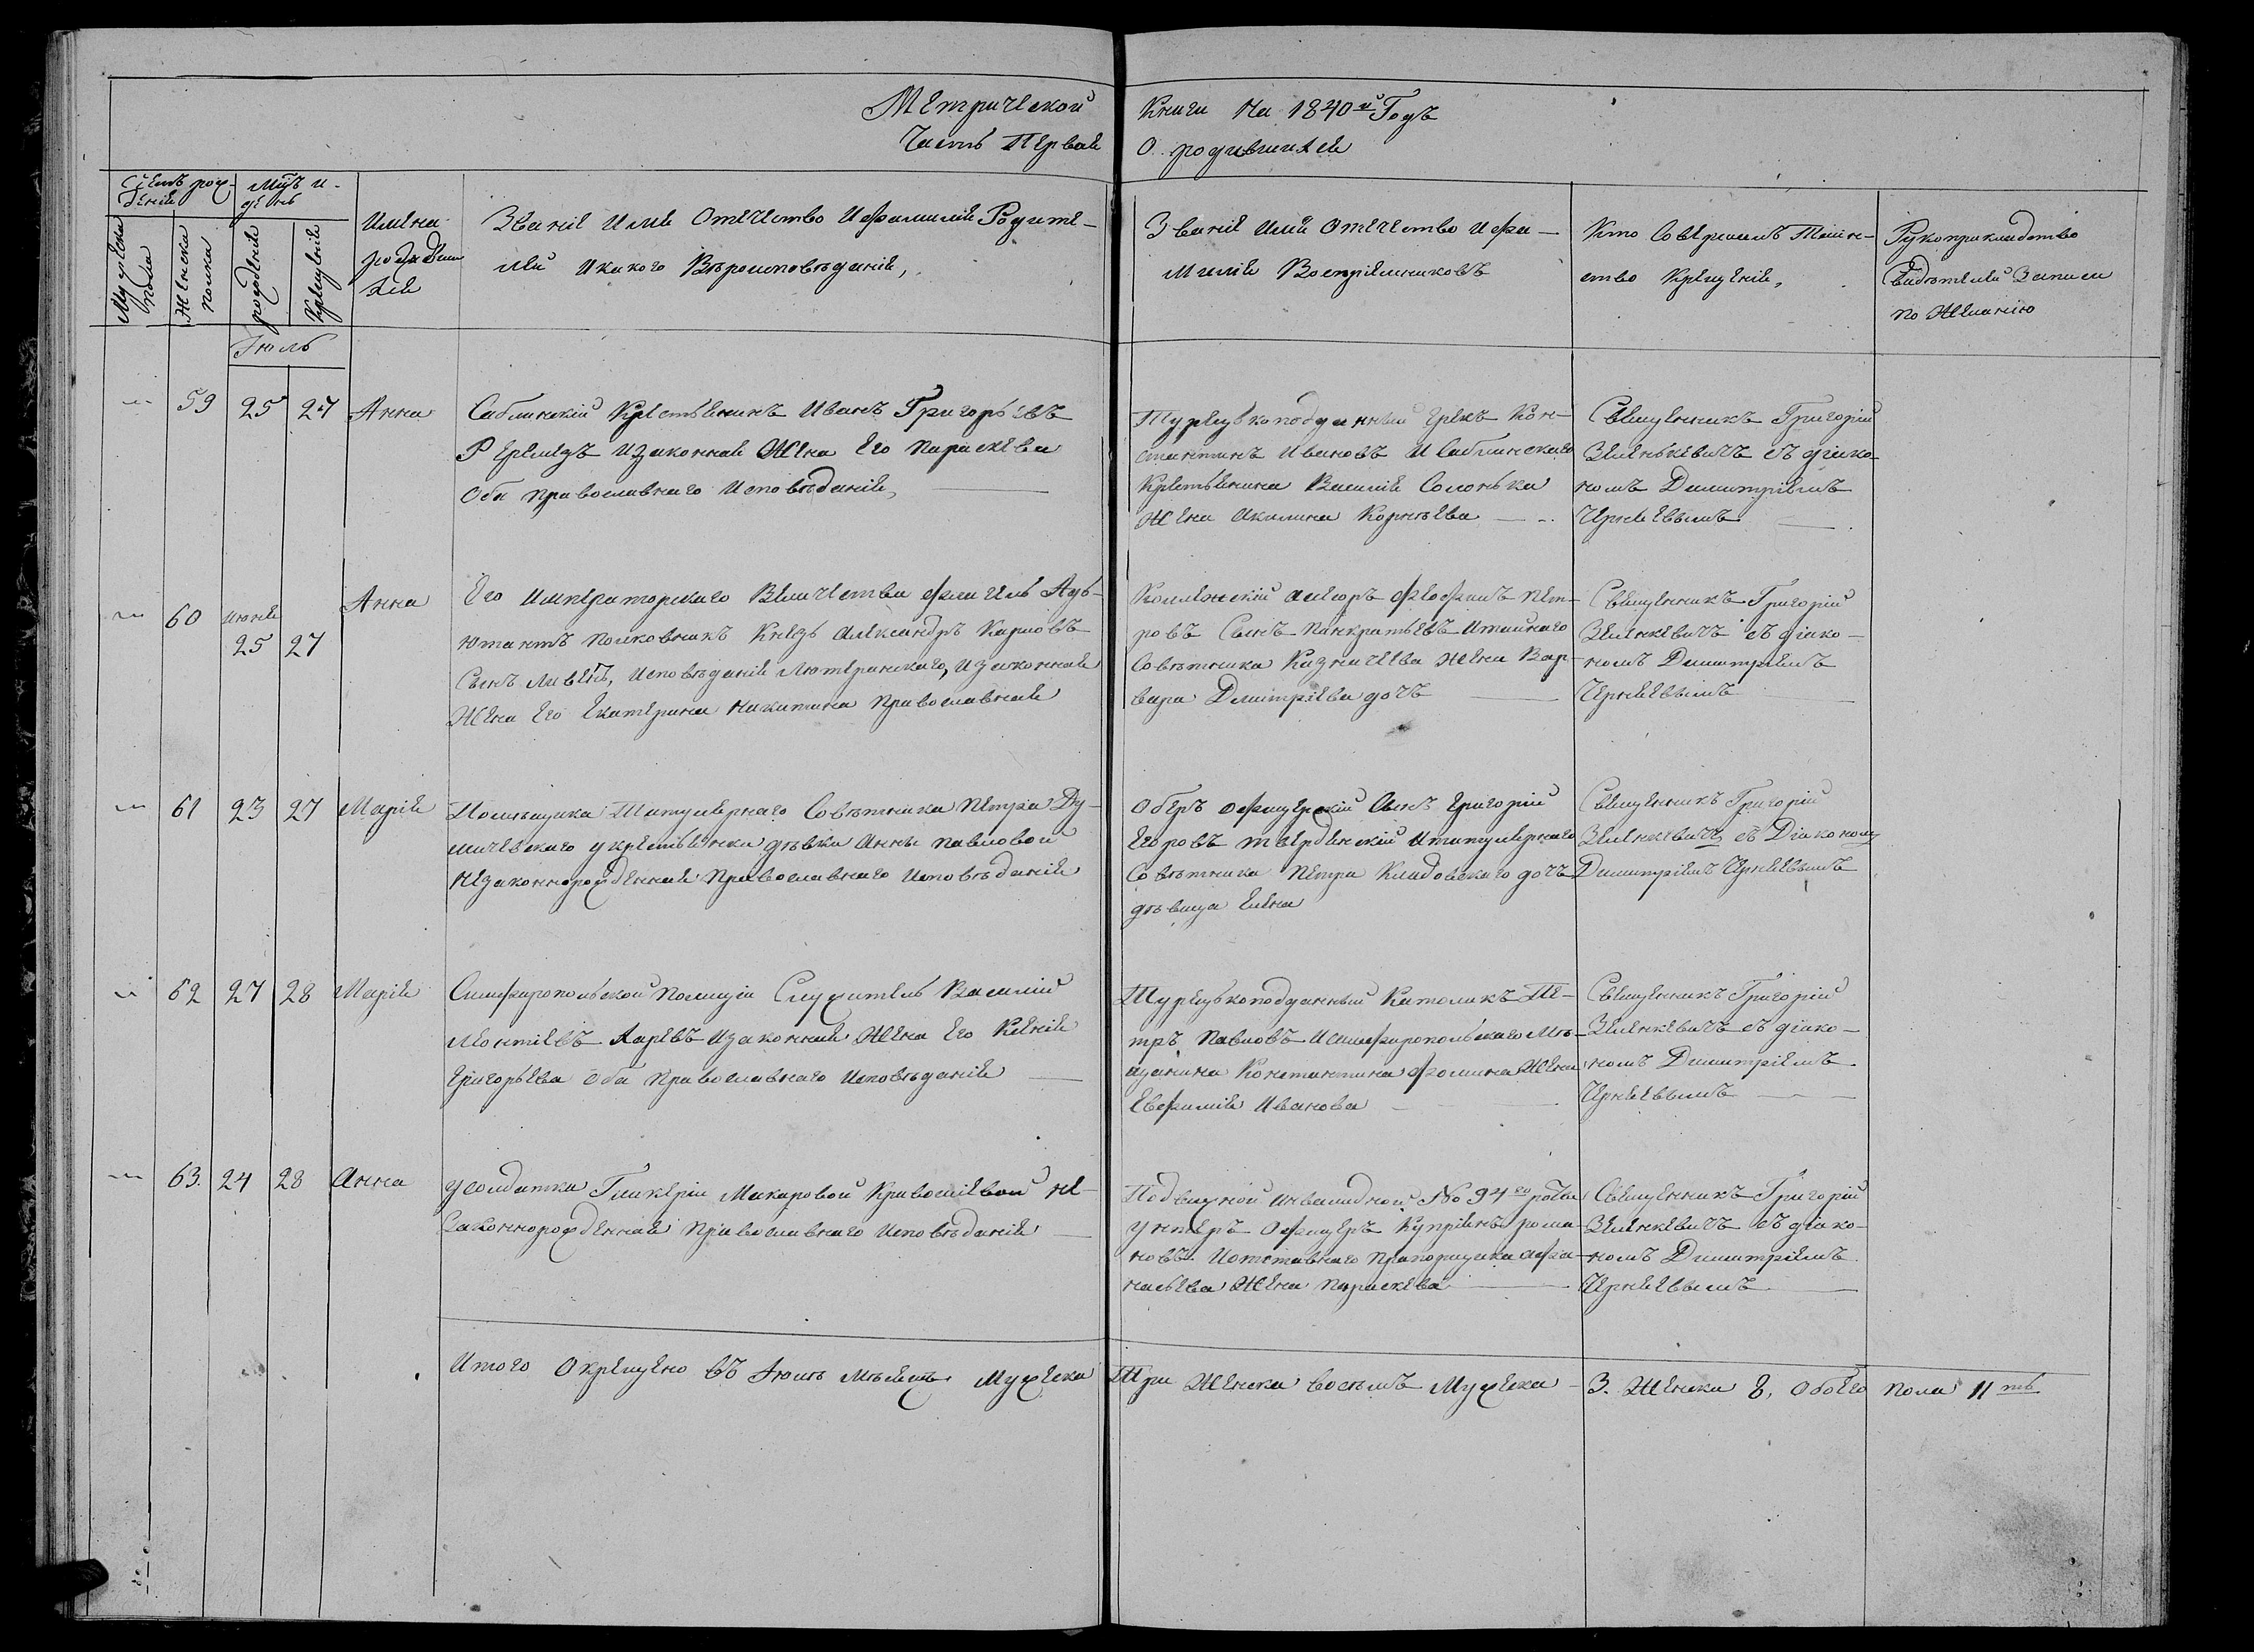 Метрической Книги На 1840й Годъ
Часть Первая О родившихся
Счетъ рож-
денія
Мцъ и
день
Мужеска
пола
Женска
пола
рожденія
Крещенія
Имена
родивши
хся
Званіе Имя Отечество Ифамилія Родите-
лей Икакого Вѣроисповѣданія,
Званіе Имя Отечество Ифа-
милія Воспріемниковъ
Кто Совершалъ Таин-
ство Крещенія,
Рукоприкладство
Свидѣтелей Записи
по Желанію
Іюль
59 25 27 Анна
Саблинскій Крестьянинъ Иванъ Григорьевъ
Изаконная Жена Его Параскева
Оба православнаго Исповѣданія,
Турецькоподданный Грекъ Кон-
стантинъ Ивановъ И Саблинскаго
Крестьянина Василія Солонька
Жена Акилина Корнѣева
Священникъ Григорій
Зеленькевичъ съ діако-
номъ Димитріемъ
Чернявымъ
60 июня 25 27 Анна
Его Императорскаго Величества флигель Адъ-
ютантъ полковникъ Князь Александръ Карловъ
Сынъ Ливенъ, Исповѣданія Лютеранскаго, Изаконная
Жена Его Екатерина Никитина Православная
Коллежскій Асесоръ Феофилъ Пет-
ровъ Сынъ Панкратьевъ Итайнаго
Совѣтника Казначеева Жена Вар-
вара Дмитріева дочъ
Священникъ Григорій
Зеленкевичъ съ діако-
номъ Димитріемъ
Чернявымъ
61 23 27 Марія
Помѣщика Титулярнаго Совѣтника Петра
укрестьянки дѣвки Анны павловой
незаконнорожденная Православнаго Исповѣданія
Оберъ офицерскій Сынъ Григорій
Егоровъ Ититулярнаго
Совѣтника Петра дочъ
дѣвица Елена
Священникъ Григорій
Зеленкевичъ съ Діакономъ
Димитріемъ Чернявымъ
62 27 28 Марія
Симфиропольской Полиціи Служитель Василій
Леонтіевъ Изаконная Жена Его Ксенія
Григорьева Оба Православнаго Исповѣданія
Турецькоподданный Католикъ Пе-
тръ Павловъ Исимфиропольскаго Мѣ-
щанина Константина Фомина Жена
Евфимія Иванова
Священникъ Григорій
Зеленкевичъ съ діако-
номъ Димитріемъ
Чернявымъ
63. 24 28 Анна
усолдатки Гликеріи Макаровой Кривошіевой не-
законнорожденная Православнаго Исповѣданія
Подвижной инвалидной № 94го роты
унтеръ Офицеръ Купріянъ рома-
новъ. Иотставнаго Прапорщика Афа-
насьева Жена Параскева
Священникъ Григорій
Зеленкевичъ съ діако-
номъ Димитріемъ
Чернявымъ
Итого Окрещено въ Іюлѣ Мѣсяцѣ Мужеска Три Женска восемъ Мужеска - 3. Женска 8, Обоего пола 11ть